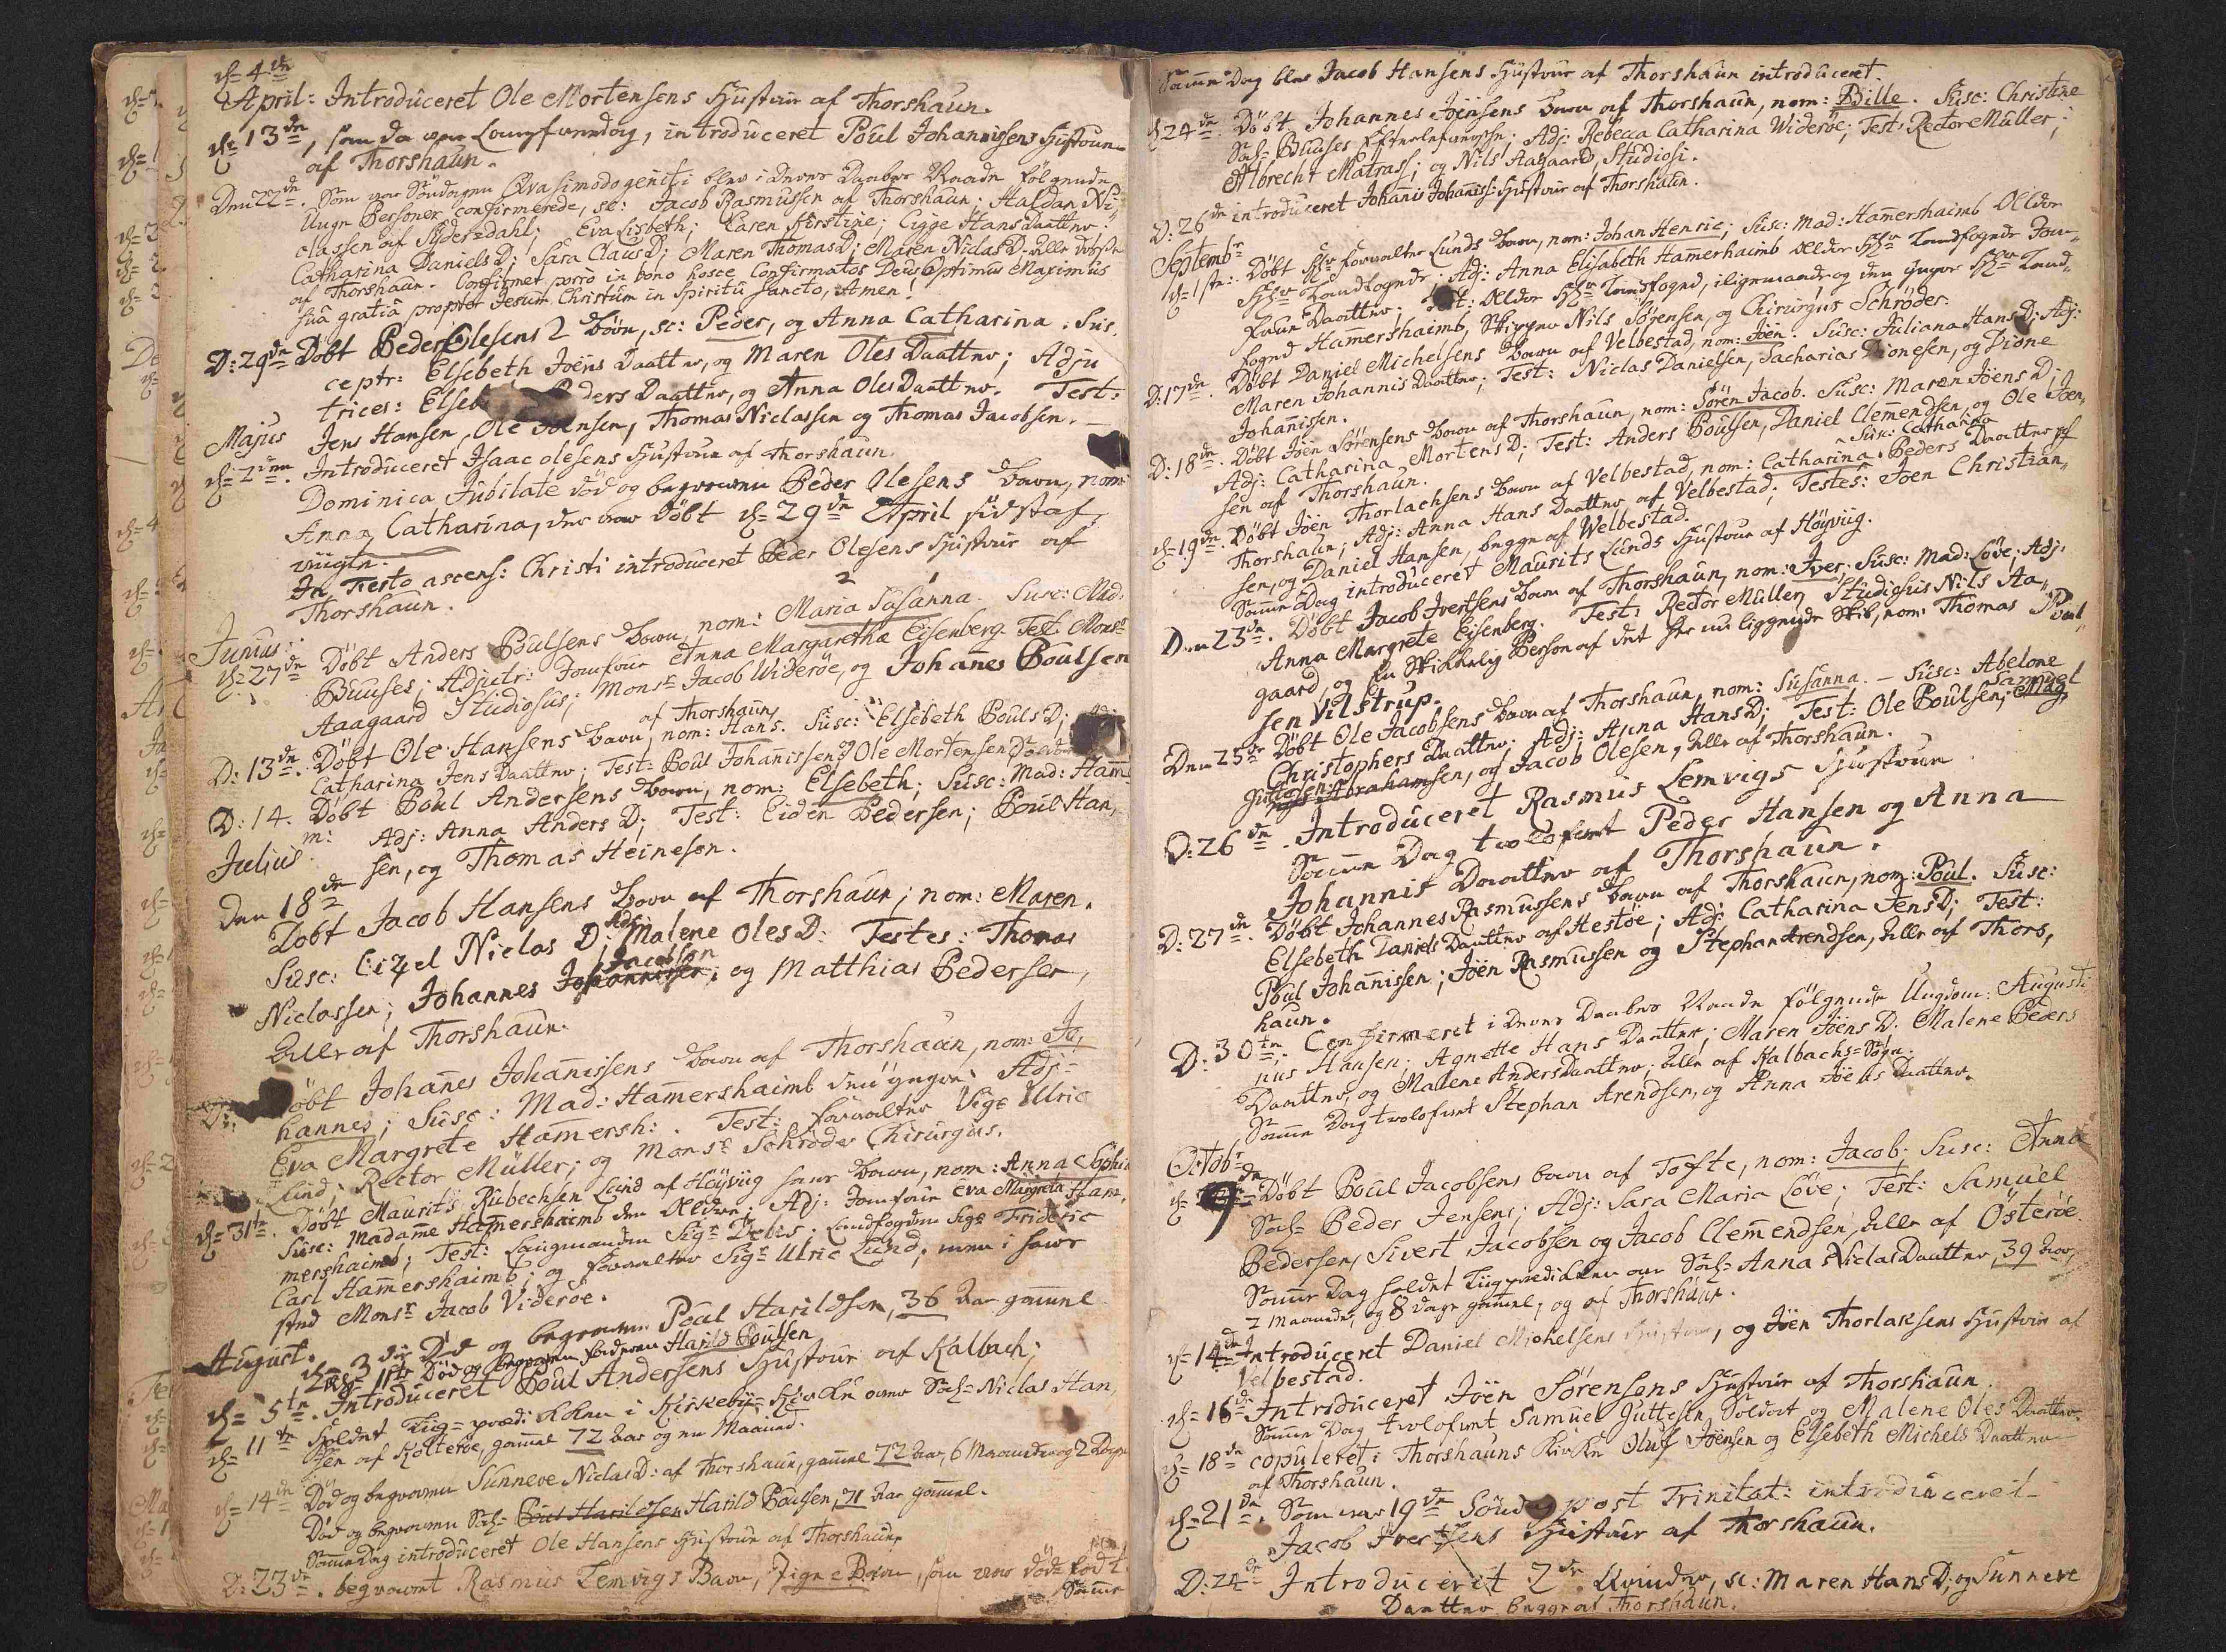 d= 4de
April: Introduceret Ole Mortensens Hustrue af Thorshaun.
d= 13de, som da var Langfredag, introduceret Poul Johannissens Hustrue
af Thorshaun.
Den 22de. Som var Söndagen Qvasimodogeniti blev i deres Daabes Naade fölgende
Unge Personer confirmerede, sc: Jacob Rasmussen af Thorshaun; Haldan Ni-
classen af Syderdahl; Eva Lisbeth; Caren Kirstine; Cigge Hans Daatter;
Catharina Daniels D; Sara Claus D; Maren Thomas D; Maren Niclas D; alle
af Thorshaun. Confirmet porro in bono hosce Confirmatos Deus Optimus Maximus
sua gratia propter Jesum Christum in Spiritu Sancto, Amen!
D: 29de Döbt Peder Olesens 2 Börn, sc: Peder, og Anna Catharina. Sus
ceptr: Elsebeth Joens Daatter, og Maren Oles Daatter; Adju
trices: Elseb Peders Daatter, og Anna Oles Daatter. Test:
Majus Jens Hansen, Ole Joensen, Thomas Niclassen og Thomas Jacobsen.
d= 2den. Introduceret Isaac Olesens Hustrue af Thorshaun.
Dominica Jubilate död og begraven Peder Olesens Barn, nom:
Anna Catharina, der var döbt d= 29de April sidstaf
In Festo ascens: Christi introduceret Peder Olesens Hustrue af
Thorshaun.
Junius:
d= 27de Döbt Anders Poulsens Barn, nom: Maria Susanna. Susc: Mad.
Buuses; Adjutr: Jomfrue Anna Margaretha Eisenberg. Test. Monsr
Aaagaard Studiosus; Monsr Jacob Wideröe, og Johannes Poulsen
af Thorshaun
D: 13de. Döbt Ole Hansens Barn, nom: Hans. Susc: Elsebeth Pouls D;
Catharina Jens Daatter; Test: Poul Johannissen og Ole Mortensen
D: 14. Döbt Poul Andersens Barn, nom: Elsebeth; Susc: Mad: Ham
m: Adj: Anna Anders D; Test: Eiden Pedersen; Poul Han,
Julius. sen, og Thomas Heinesen.
Den 18de
Döbt Jacob Hansens Barn af Thorshaun; nom: Maren.
Susc: Cizel Niclas D; Adj: Malene Oles D: Testes: Thomas
Niclassen; Johannes Jacobsen, og Matthias Pedersen,
alle af Thorshaun.
Döbt Johannes Johannissens Barn af Thorshaun, nom: Jo,
hannes; Susc: Mad: Hammershaimb den yngre: Adj=
Eva Margrete Hammersh: . Test: Forvalter Sigr Ulric
Lund; Rector Müller; og Monsr Schröder Chirurgus.
d= 31te. Döbt Maurits Rubechsen Lund af Höyviig hans Barn, nom: Anna Sophia
Susc: Madamme Hammershaimb den Ældre; Adj: Jomfrue Eva Margreta Ham,
mershaimb; Test: Laugmanden Sigr Debes; Landfogden Sigr Frideric
Carl Hammershaimb; og Forvalter Sigr Ulric Lund, men i hans
sted Monsr Jacob Videröe.
August.
d= 3die Död og begraven Poul Harildsen, 36 Aar gammel
d= 11te Död og begraven Harild Poulsen
d= 5te. Introduceret Poul Andersens Hustrue af Kalbach;
d= 11te Holdet Liig=prædikken i Kirkebye=Kirke over Sal= Niclas Han,
sen af Kolteröe, gammel 72 Aar og en Maaned.
d= 14de Död og begraven Sunneve Niclas D: af Thorshaun, gammel 72 Aar, 6 Maaneder og 2 Dage
Död og begraven Sal= Poul Harildsen Harild Poulsen, 71 Aar gammel.
Samme Dag introduceret Ole Hansens Hustrue af Thorshaun.
D: 23de. begravet Rasmus Lemvigs Barn, Pigne Barn, som var död födt.
Samme
Samme Dag blev Jacob Hansens Hustrue af Thorshaun introduceret.
d= 24de. Döbt Johannes Joensens Barn af Thorshaun, nom: Bille. Susc: Christine
Sal= Buuses Efterleverske; Adj: Rebecca Catharina Wideröe; Test: Rector Müller;
Albrecht Matras; og Nils Aagaard, Studiosi.
D: 26de introduceret Johanis Johaniss: Hustrue af Thorshaun.
Septembr
d= 1ste: Döbt Hr Forvalter Lunds Barn, nom: Johan Henric; Susc: Mad: Hammershaimb Ældre
Hr Landfogeds; Adj: Anna Elisabeth Hammerhaimb Ældre Hr Landfogeds Jom-
frue Daatter; Test: Ældre Hr Landfoged, iligemaade og den yngre Hr Land,
foged Hammershaimb, Skipper Nils Sörensen, og Chirurgus Schröder.
D: 17de. Döbt Daniel Michelsens Barn af Velbestad, nom: Joen. Susc: Juliana Hans D; Adj:
Maren Johannis Daatter; Test: Niclas Danielsen, Zacharias Dionesen, og Dione
Johannissen.
D: 18de. Döbt Joen Sörensens Barn af Thorshaun, nom: Sören Jacob. Susc: Maren Joens D;
Adj: Catharina Mortens D; Test: Anders Poulsen, Daniel Clemmendsen, og Ole Joen,
sen af Thorshaun.
d= 19de. Döbt Joen Thorlachsens Barn af Velbestad, nom: Catharina. Susc: Catharina Peders Daatter af
Thorshaun; Adj: Anna Hans Daatter af Velbestad; Testes: Joen Christian,
sen, og Daniel Hansen, begge af Welbestad.
Samme Dag introduceret Maurits Lunds Hustrue af Höyviig.
Den 23de. Döbt Jacob Ivertsens Barn af Thorshaun, nom: Iver; Susc: Mad: Löve; Adj:
Anna Margrete Eisenberg. Test: Rector Müller, Studiosus Nils Aa,
gaard, og En Skikkelig Person af det her nu liggende Skib, nom: Thomas Poul,
sen Vilstrup.
Den 25de Döbt Ole Jacobsens Barn af Thorshaun, nom: Susanna. - Susc: Abelone
Christophers Daatter; Adj: Anna Hans D; Test: Ole Poulsen; Samuel
Juttesen, og Jacob Olesen, alle af Thorshaun.
D: 26de. Introduceret Rasmus Lemvigs Hustrue
Samme Dag trolofvet Peder Hansen og Anna
Johannis Daatter af Thorshaun.
D: 27de. Döbt Johannes Rasmussens Barn af Thorshaun, nom: Poul. Susc:
Elsebeth Daniels Daatter af Hestöe; Adj: Catharina Jens D; Test:
Poul Johannissen; Joen Rasmussen og Stephan Arendsen, alle af Thors,
haun.
D: 30te: Confirmeret i deres Daabes Naade fölgende Ungdom: Augusti,
nus Hansen; Agnette Hans Daatter; Maren Joens D. Malene Peders
Daatter, og Malene Anders Daatter; alle af Kalbachs=Sogn.
Samme Dag trolofvet Stephan Arendsen, og Anna Joens Daatter.
Octobr
d= 9de Döbt Poul Jacobsens Barn af Tofte, nom: Jacob; Susc: Anna
Sal= Peder Jensens; Adj: Sara Maria Löve; Test: Samuel
Pedersen, Sivert Jacobsen og Jacob Clemmendsen, alle af Österöe.
Samme Dag holdet Liigprædikken over Sal= Anna Niclas Daatter, 39 Aar,
2 Maaneder, og 8 dage gammel, og af Thorshaun.
d= 14de Introduceret Daniel Michelsens Hustrue, og Joen Thorlaksens Hustrue af
Velbestad.
d= 16de Introduceret Joen Sörensens Hustrue af Thorshaun.
Samme Dag trolofvet Samuel Juttesen, Soldat og Malene Oles Daatter.
d= 18de copuleret i Thorshauns Kirke Oluf Joensen og Elsebeth Michels Daatter
af Thorshaun.
d= 21de. Som var 19de Söndag post Trinitat: introduceret
Jacob Ivertsens Hustrue af Thorshaun.
D: 24de Introduceret 2de Qvinder, sc: Maren Hans D; og Sunneve
Daatter begge af Thorshaun.